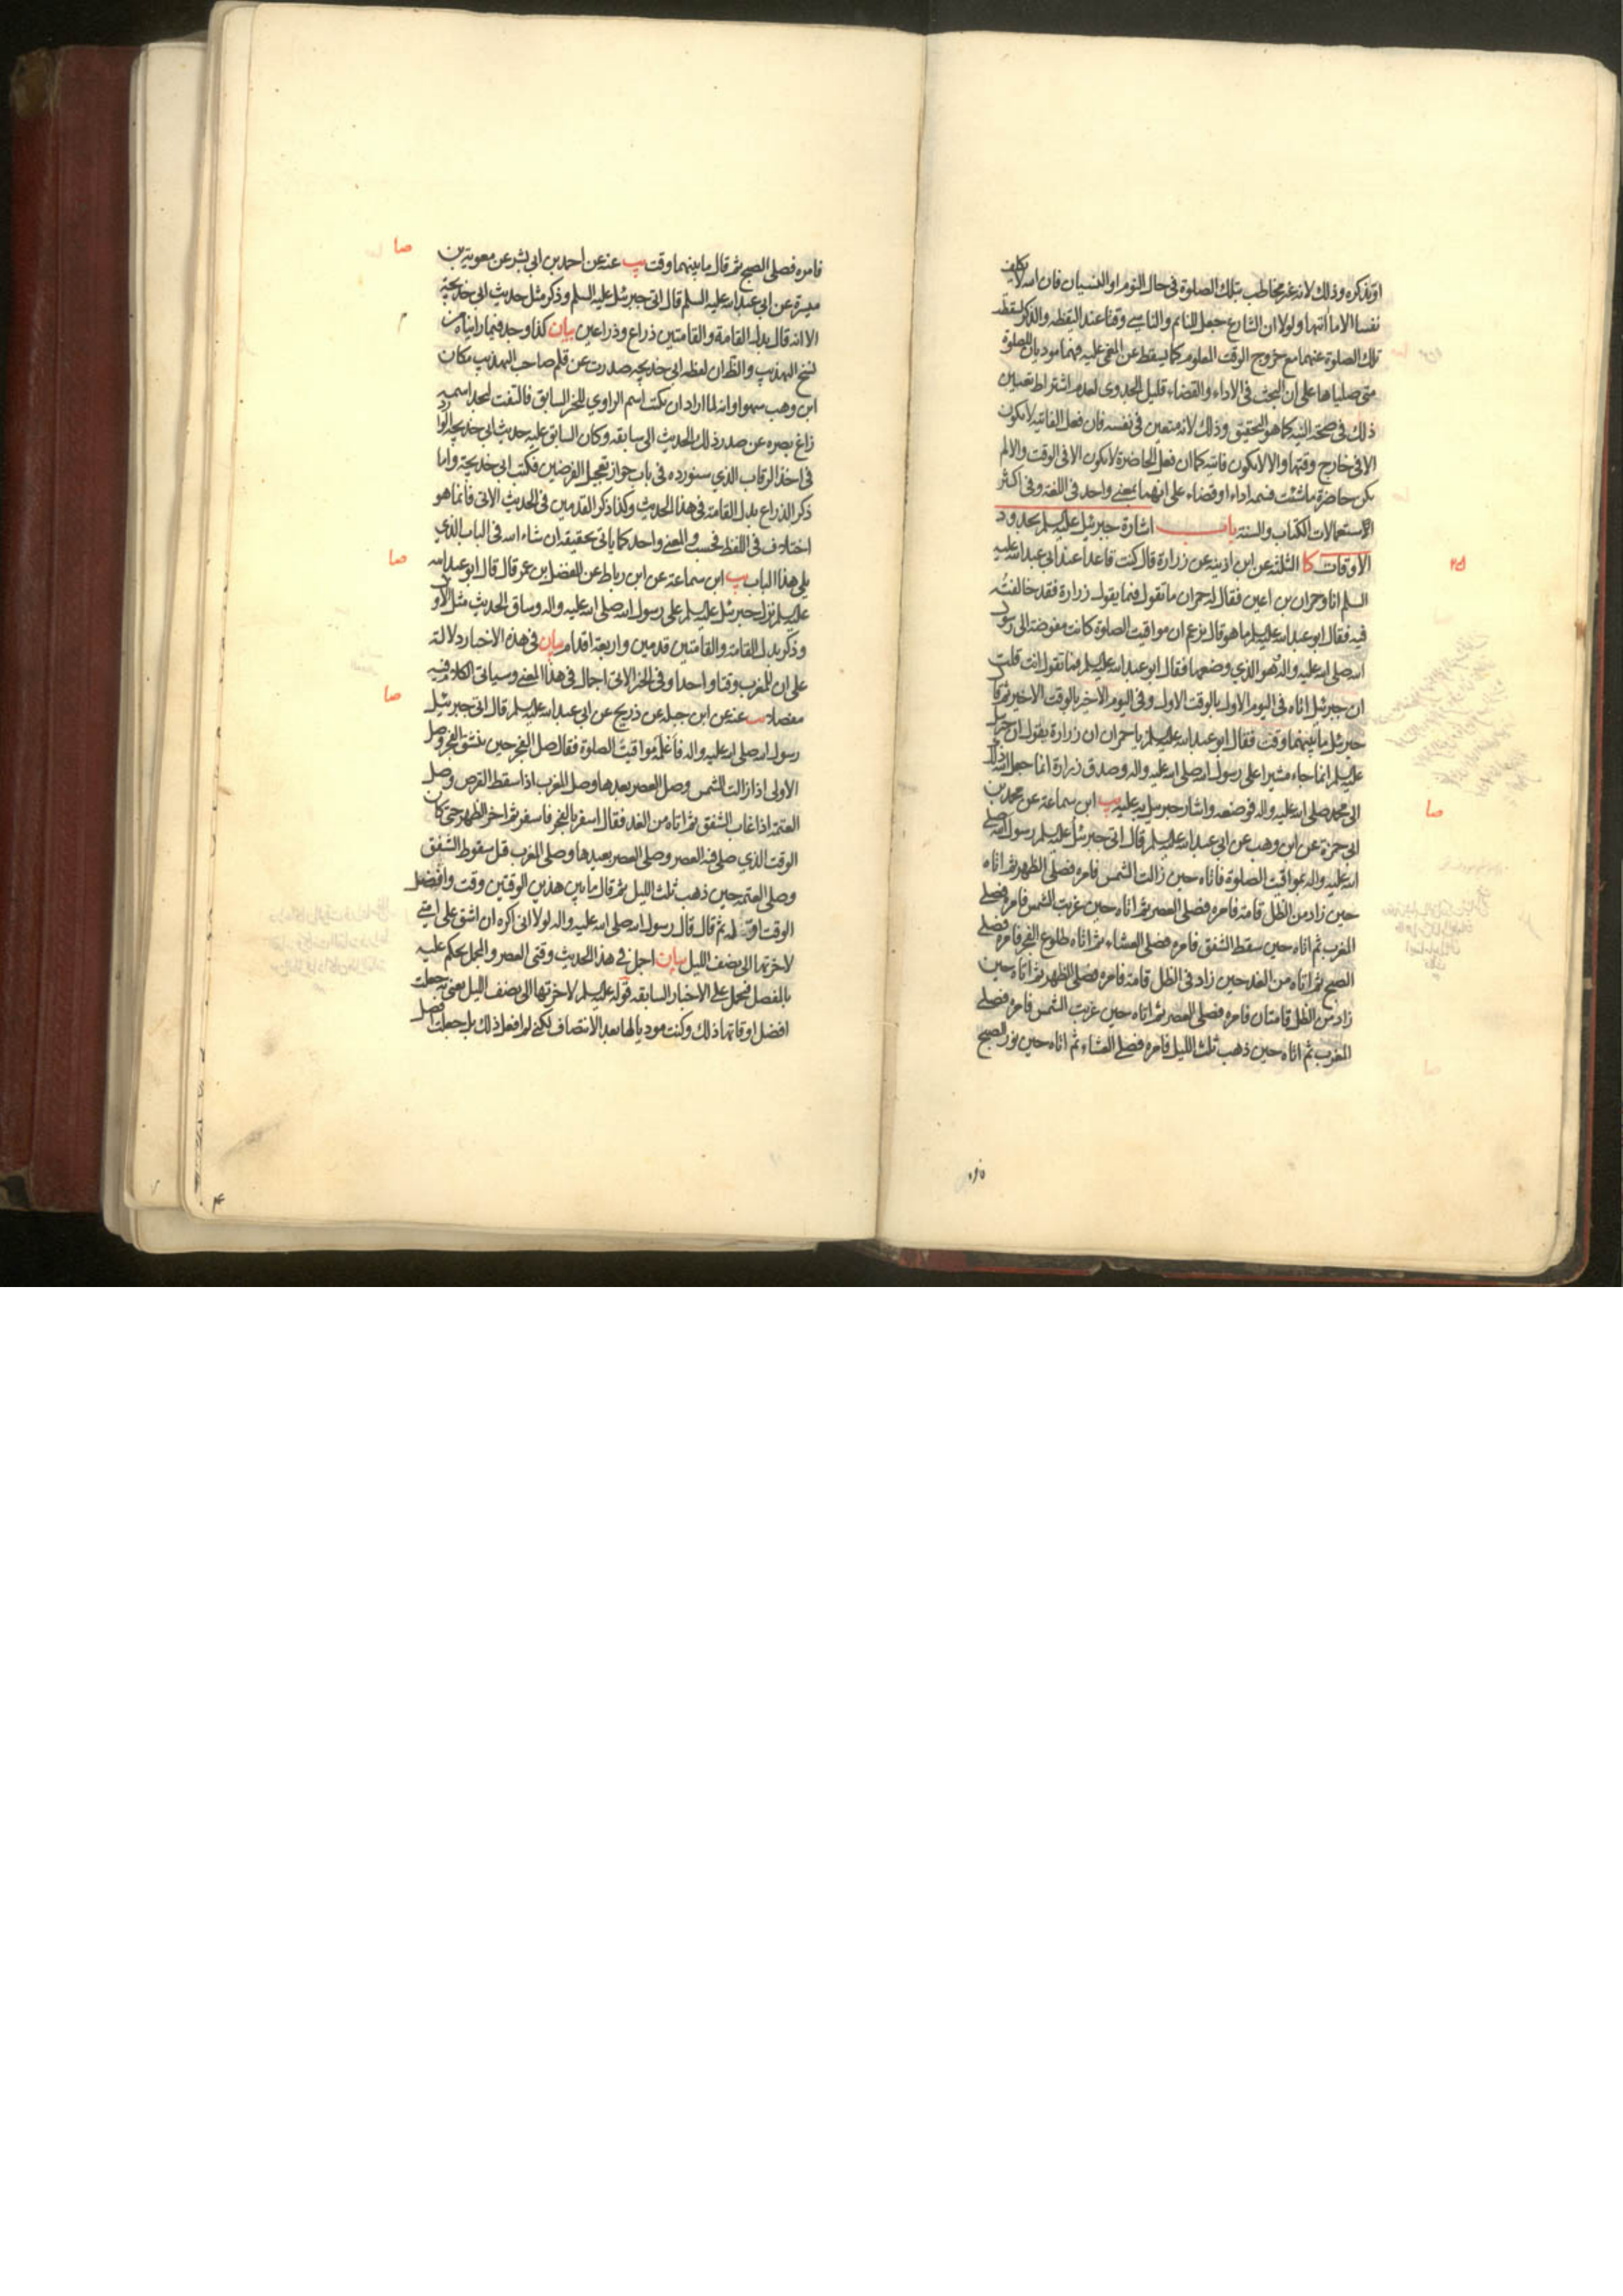 او تذكره وذلك لانه غير مخاطب بتلك الصلوة فى حال النوم او النسيان فان الله لا يكلف
نفسا الا ما اتيها ولولا ان الشارع جعل للنائم والناسي وقتا عند اليقظه والذكر لسقطت
تلك الصلوة عنهما مع خروج الوقت المعلوم كما يسقط عن المغمى عليه فهما موديان للصلوة
متى صلياها على ان البحث فى الاداء والقضاء قليل الجدوى لعدم اشتراط تعيين
ذلك فى صحة النية كما هو التحقيق وذلك لانه متعين فى نفسه فان فعل الفائتة لا يكون
الا فى خارج وقتها والا لا يكون فائتة كما ان فعل الحاضرة لا يكون الا فى الوقت والا لم
يكن حاضرة ما شئت فسمه اداء او قضاء على انهما بمعنى واحد فى اللغة وفى اكثر
الاستعمالات الكتاب والسنة باب اشارة جبرئيل عليه السلم بحدود
الاوقات كا الثلثة عن ابن اذينه عن زرارة قال كنت قاعدا عند ابى عبد الله عليه
السلم انا وحمران بن اعين فقال له حمران ما تقول فيما يقول زرارة فقد خالفته
فيه فقال ابو عبد الله عليه السلم ما هو قال يزعم ان مواقيت الصلوة كانت مفوضة الى رسول
الله صلى الله عليه واله هو الذي وضعها فقال ابو عبد الله عليه السلم فما تقول انت قلت
ان جبرئيل اتاه فى اليوم الاول بالوقت الاول وفى اليوم الاخير بالوقت الاخير ثم قال
جبرئيل ما بينهما وقت فقال ابو عبد الله عليه السلم يا حمران ان زرارة يقول ان جبرئيل
عليه السلم انما جاء مشيرا على رسول الله صلى الله عليه واله وصدق زرارة انما جعل الله ذلك
الى محمد صلى الله عليه واله فوضعه واشار جبرئيل به عليه يب ابن سماعة عن محمد بن
ابى حمزة عن ابن وهب عن ابى عبد الله عليه السلم قال اتى جبرئيل عليه السلم رسول الله صلى
الله عليه واله بمواقيت الصلوة فاتاه حين زالت الشمس فامره فصلى الظهر ثم اتاه
حين زاد من الظل قامة فامره فصلى العصر ثم اتاه حين غربت الشمس فامره فصلى
المغرب ثم اتاه حين سقط الشفق فامره فصلى العشاء ثم اتاه طلوع الفجر فامره فصلى
الصبح ثم اتاه من الغد حين زاد فى الظل قامة فامره فصلى الظهر ثم اتاه حين
زاد من الظل قامتان فامره فصلى العصر ثم اتاه حين غربت الشمس فامره فصلى
المغرب ثم اتاه حين ذهب ثلث الليل فامره فصلى العشاء ثم اتاه حين نور الصبح
صا
فامره فصلى الصبح ثم قال ما بينهما وقت يب عنه عن احمد بن ابى بشر عن معوية بن
ميسرة عن ابى عبد الله عليه السلم قال اتى جبرئيل عليه السلم وذكر مثل حديث ابى خديجة
الا انه قال بدل القامة والقامتين ذراع وذراعين بيان كذا وجد فيما رايناه من
نسخ التهذيب والظ ان لفظه ابى خديجه صدرت عن قلم صاحب التهذيب مكان
ابن وهب سهوا وانه لما اراد ان يكتب اسم الراوي للخبر السابق فالتفت ليجد اسمه
زاغ بصره عن صدر ذلك الحديث الى سابقه وكان السابق عليه حديث ابى خديجه الوارد
فى اخذ الرقاب الذي سنورده فى باب جواز تعجيل الفرضين فكتب ابى خديجة واما
ذكر الذراع بدل القامة فى هذا الحديث وكذا ذكر القدمين فى الحديث الاتى فانما هو
اختلاف فى اللفظ فحسب والمعنى واحد كما ياتى تحقيقه ان شاء الله فى الباب الذي
يلى هذا الباب يب ابن سماعة عن ابن رباط عن المفضل بن عمر قال قال ابو عبد الله
عليه السلم نزل جبرئيل عليه السلم على رسول الله صلى الله عليه واله وساق الحديث مثل الاول
وذكر بدل القامة والقامتين قدمين واربعة اقدام بيان فى هذه الاخبار دلالة
على ان للمغرب وقتا واحدا وفى الخبر الاتى اجمال فى هذا المعنى وسياتى الكلام فيه
مفصلا يب عنه عن ابن جبله عن ذريح عن ابى عبد الله عليه السلم قال اتى جبرئيل
رسول الله صلى الله عليه واله فاعلمه مواقيت الصلوة فقال صل الفجر حين ينشق الفجر وصل
الاولى اذا زالت الشمس وصل العصر بعيدها وصل المغرب اذا سقط القرص وصل
العتمة اذا غاب الشفق ثم اتاه من الغد فقال اسفر بالفجر فاسفر ثم اخر الظهر حتى كان
الوقت الذي صلى فيه العصر وصلى العصر بعيدها وصلى المغرب قبل سقوط الشفق
وصلى العتمة حين ذهب ثلث الليل ثم قال ما بين هذين الوقتين وقت وافضل
الوقت اوله ثم قال قال رسول الله صلى الله عليه واله لولا انى اكره ان اشق على امتى
لاخرتها الى نصف الليل بيان اجمل فى هذا الحديث وقتى العصر والمجمل يحكم عليه
بالمفصل فيحمل على الاخبار السابقه قوله عليه السلم لاخرتها الى نصف الليل يعنى جعلت
افضل اوقاتها ذلك وكنت موديا لها بعد الانتصاف لكنى لم افعل ذلك بل جعلت افضل
صا
صا
صا